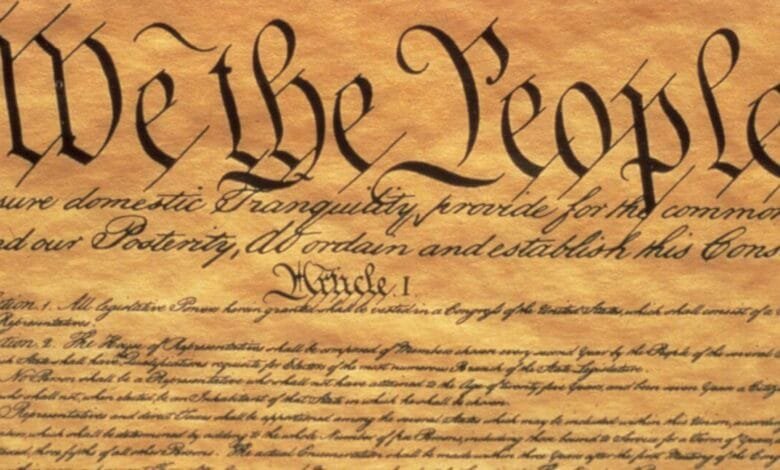 We the People
sure domestic Tranquility, provide for the common
nd our Posterity, do ordain and establish this Cons
Article. I.
ction. 1. All legislative Powers herein granted shall be vested in a Congress of the United States, which shall consist of a
Representatives.
ction. 2. The House of Representatives shall be composed of Members chosen every second Year by the People of the several
State shall have Qualifications requisite for Electors of the most numerous Branch of the State Legislature.
No Person shall be a Representative who shall not have attained to the Age of twenty five Years, and been seven Years a Citiz
who shall not, when elected, be an Inhabitant of that State in which he shall be chosen.
Representatives and direct Taxes shall be apportioned among the several States which may be included within this Union, accord
which shall be determined by adding to the whole Number of free Persons, including those bound to Service for a Term of Years,
three fifths of all other Persons. The actual Enumeration shall be made within three Years after the first Meeting of the Cong